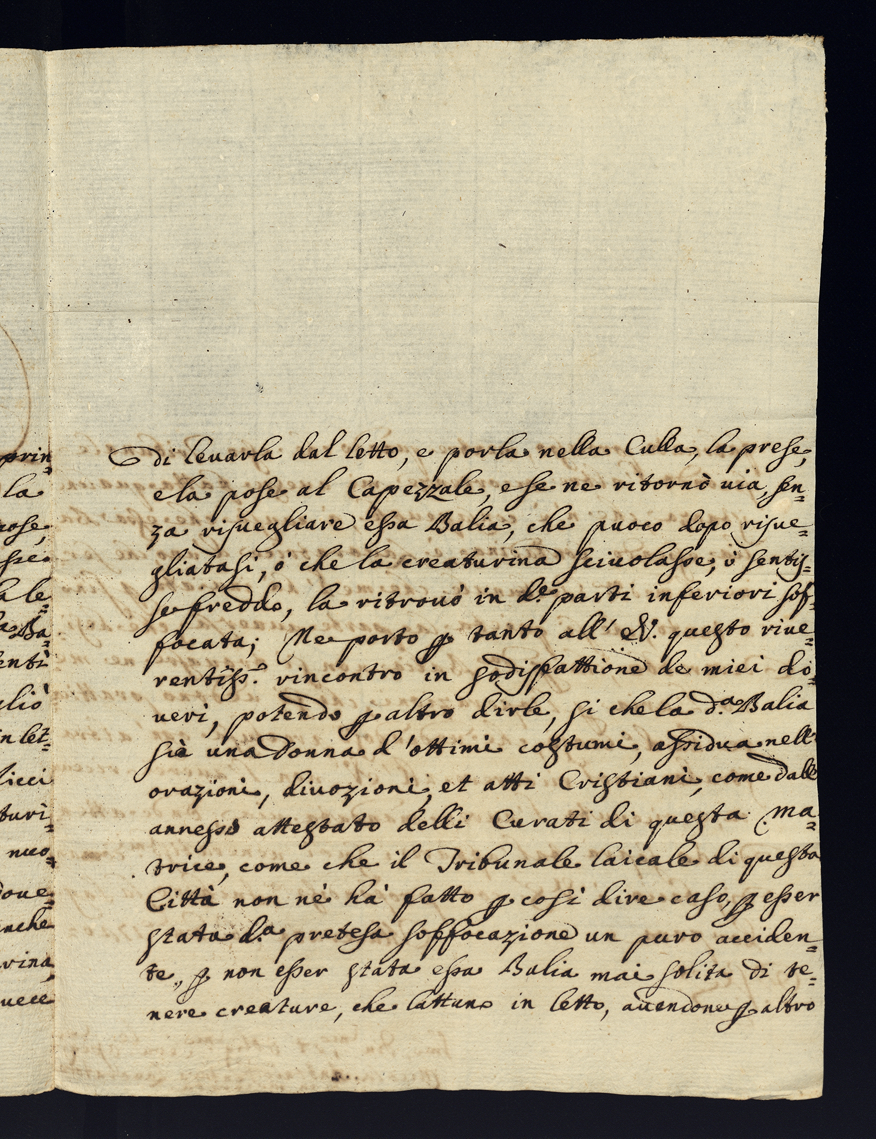 prin
la
pose,
sse
a le
la Ba
enti
gliò
in let
ricci
turi
nuo
doue
anche
rina
uece
di leuarla dal letto, e porla nella Culla, la prese,
e la pose al Capezzale, e se ne ritornò uia, sen=
za risuegliare essa Balia, che puoco dopo risue=
gliatasi, ò che la creaturina sciuolasse, ò sentis=
se freddo, la ritrouò in d.e parti inferiori sof=
focata; Ne porto p tanto all' E.V. questo riue=
rentiss.o rincontro in sodisfattione de miei do=
ueri, potendo p altro dirle, si che la d.a Balia
sia una Donna d'ottimi costumi, assidua nell'
orazioni, diuozioni, et atti Cristiani, come dall'
annesso attestato delli Curati di questa Ma=
trice, come che il Tribunale laicale di questa
Città non nè hà fatto p così dire caso, p esser
stata d.a pretesa soffocazione un puro acciden=
te, p non esser stata essa Balia mai solita di te=
nere creature, che lattuno in letto, auendone p altro